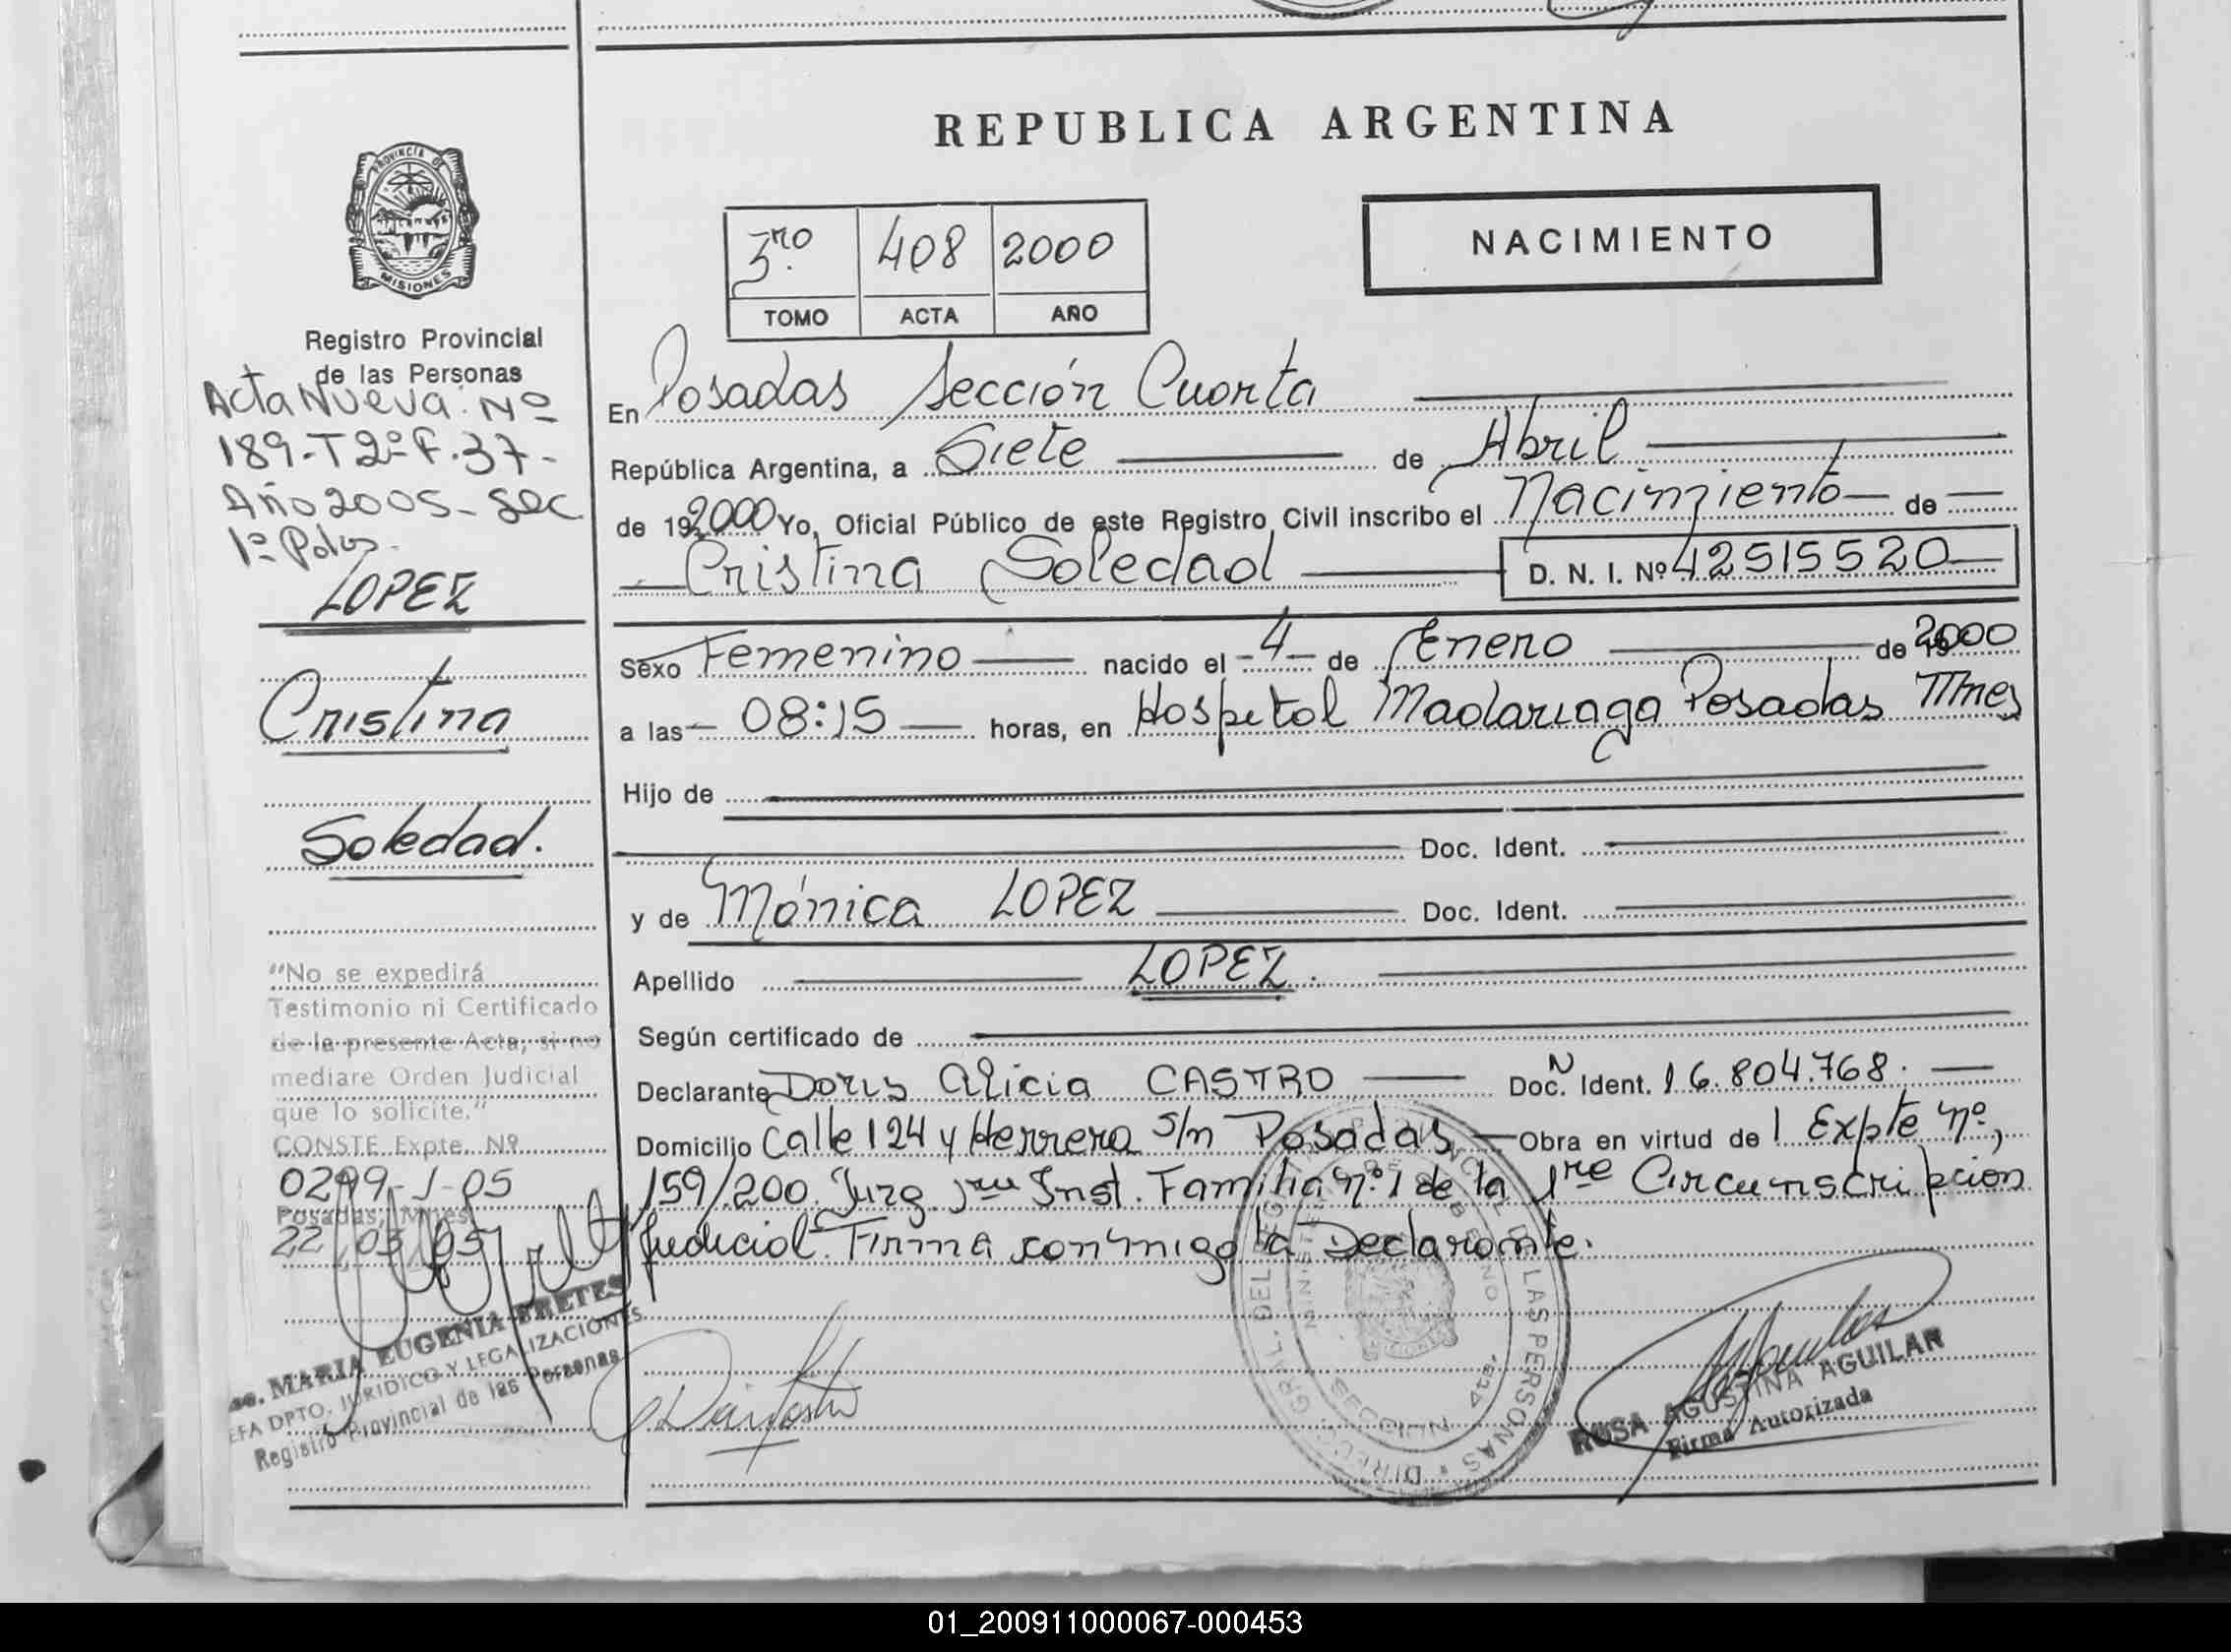 REPUBLICA ARGENTINA
PROVINCIA DE
MISIONES
Registro Provincial
de las Personas
Acta Nueva Nº
189-T 2º F.37-
Año 2005- Sec
1º Pdas.
LOPEZ
Cristina
Soledad.
"No se expedirá
Testimonio ni Certificado
de la presente Acta, si no
mediare Orden Judicial
que lo solicite."
CONSTE Expte. Nº
0299-J-05
Posadas, Mnes
22/03/05
MARIA EUGENIA FRETES
JEFA DPTO. JURIDICO Y LEGALIZACIONES
Registro Provincial de las Personas
3ro. 408 2000
TOMO ACTA AÑO
NACIMIENTO
En Posadas Sección Cuarta
República Argentina, a Siete de Abril
de 192000 Yo, Oficial Público de este Registro Civil inscribo el Nacimiento de
Cristina Soledad D. N. I. Nº 42515520
Sexo Femenino nacido el -4- de Enero de 2000
a las 08:15 horas, en Hospital Madariaga Posadas Mnes
Hijo de
Doc. Ident.
y de Mónica LOPEZ Doc. Ident.
Apellido LOPEZ.
Según certificado de
Declarante Doris Alicia CASTRO Doc. N Ident. 16.804.768.
Domicilio Calle 124 y Herrera S/n Posadas Obra en virtud de Expte nº,
159/200. Juzg. 1ra Inst. Familia nº 1 de la 1ra Circunscripcion
Judicial. Firma conmigo la Declarante.
DIRECC. GRAL. DEL REGISTRO PROVINCIAL DE LAS PERSONAS
MINISTERIO DE GOBIERNO
SECCION 4ta.
ROSA AGUSTINA AGUILAR
Firma Autorizada
01_200911000067-000453